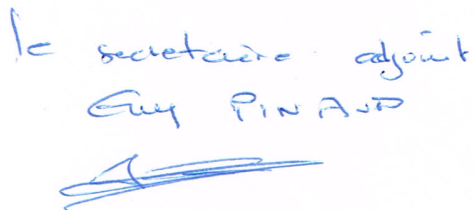 le secretaire adjoint
Guy PINAUD